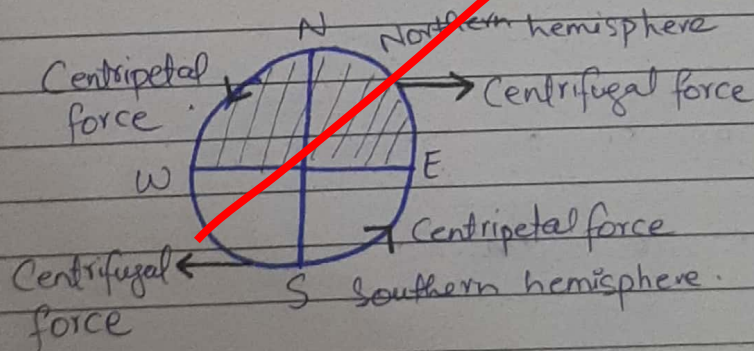 N
Northern hemisphere
Centripetal
force
Centrifugal force
W
E
Centripetal force
Centrifugal
force
S
Southern hemisphere.